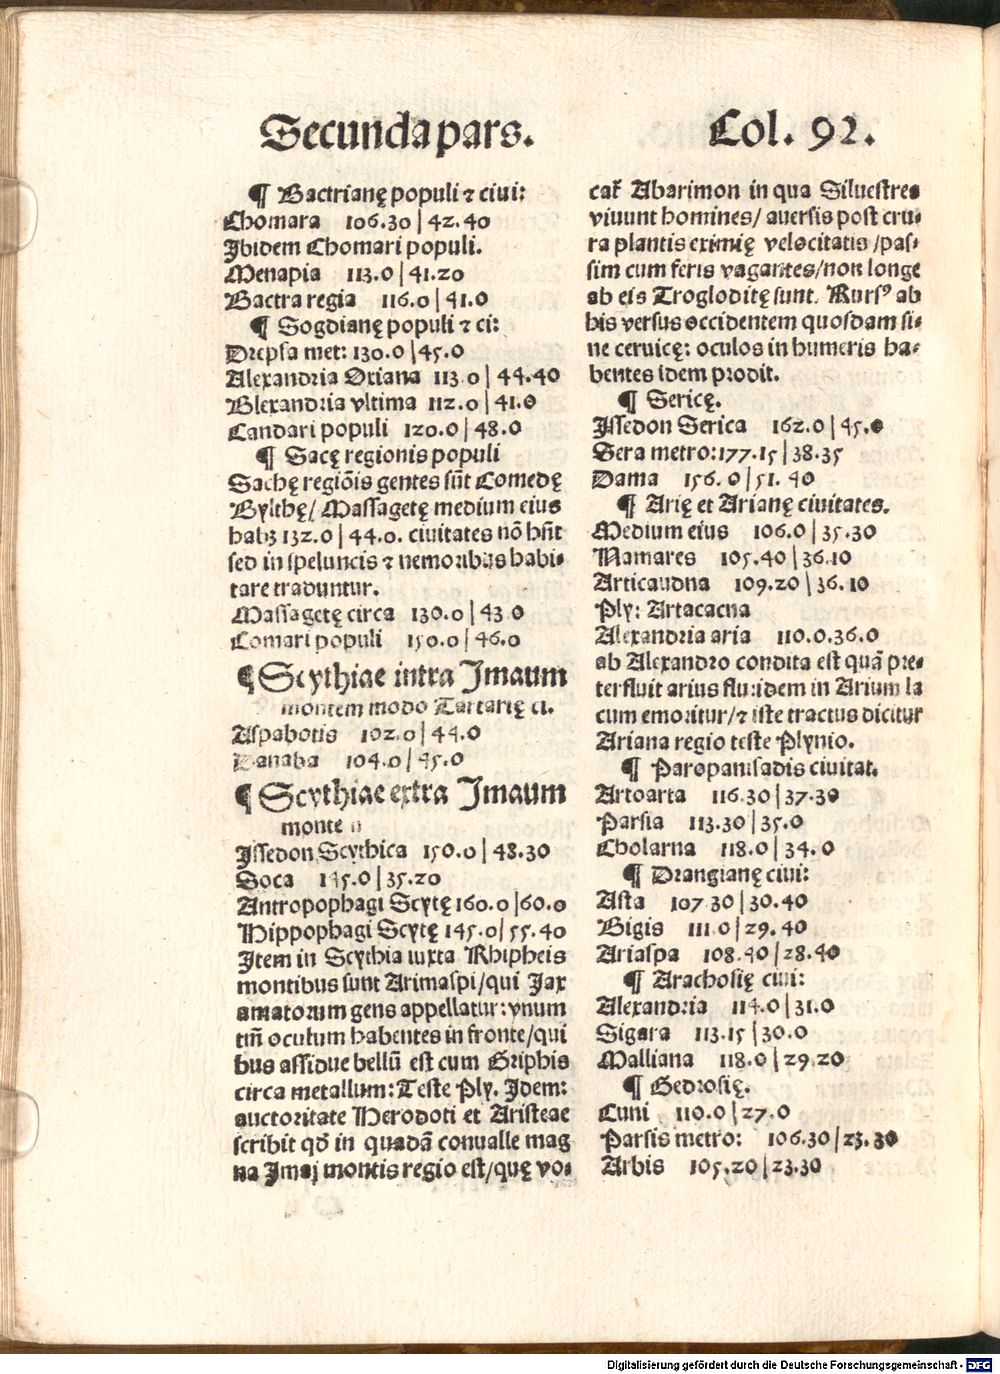 Secunda pars.
Col. 92.
¶ Bactrianę populi ⁊ ciui:
Chomara 106.30 | 42.40
Ibidem Chomari populi.
Menapia 113.0 | 41.20
Bactra regia 116.0 | 41.0
¶ Sogdianę populi ⁊ ci:
Drepsa met: 130.0 | 45.0
Alexandria Oxiana 113.0 | 44.40
Blexandria vltima 112.0 | 41.0
Candari populi 120.0 | 48.0
¶ Sacę regionis populi
Sachę regiōis gentes sūt Comedę
Bylthę/ Massagetę medium eius
habꝫ 132.0 | 44.0. ciuitates nō hn̄t
sed in speluncis ⁊ nemoribus habi-
tare traduntur.
Massagetę circa 130.0 | 43 0
Comari populi 150.0 | 46.0
¶ Scythiae intra Imaum
montem modo Tartarię ci.
Aspabotis 102.0 | 44.0
Danaba 104.0 | 45.0
¶ Scythiae extra Imaum
monte
Issedon Scythica 150.0 | 48.30
Soca 145.0 | 35.20
Antropophagi Scytę 160.0 | 60.0
Hippophagi Scytę 145.0 | 55.40
Item in Scythia iuxta Rhipheis
montibus sunt Arimaspi/qui Jax
amatorum gens appellatur: vnum
tm̄ oculum habentes in fronte/qui
bus assidue bellū est cum Griphis
circa metallum: Teste Ply. Idem:
auctoritate Herodoti et Aristeae
scribit qđ in quadā conualle mag
na Imaj montis regio est/quę vo-
cat̄ Abarimon in qua Siluestres
viuunt homines/ auersis post cru-
ra plantis eximię velocitatis /pas-
sim cum feris vagantes/non longe
ab eis Trogloditę sunt. Rursꝰ ab
his versus occidentem quosdam si-
ne ceruicę: oculos in humeris ha-
bentes idem prodit.
¶ Sericę.
Issedon Serica 162.0 | 45.0
Sera metro: 177.15 | 38.35
Dama 156.0 | 51.40
¶ Arię et Arianę ciuitates.
Medium eius 106.0 | 35.30
Namares 105.40 | 36.10
Articaudna 109.20 | 36.10
Ply: Artacacna
Alexandria aria 110.0.36.0
ab Alexandro condita est quā pre-
terfluit arius flu: idem in Arium la
cum emoritur/⁊ iste tractus dicitur
Ariana regio teste Plynio.
¶ Paropanisadis ciuitat.
Artoarta 116.30 | 37.30
Parsia 113.30 | 35.0
Cholarna 118.0 | 34.0
¶ Drangianę ciui:
Asta 107 30 | 30.40
Bigis 111 0 | 29.40
Ariaspa 108.40 | 28.40
¶ Arachosię ciui:
Alexandria 114.0 | 31.0
Sigara 113.15 | 30.0
Malliana 118.0 | 29.20
¶ Gedrosię.
Cuni 110.0 | 27.0
Parsis metro: 106.30 | 23.30
Arbis 105.20 | 23.30
Digitalisierung gefördert durch die Deutsche Forschungsgemeinschaft - DFG